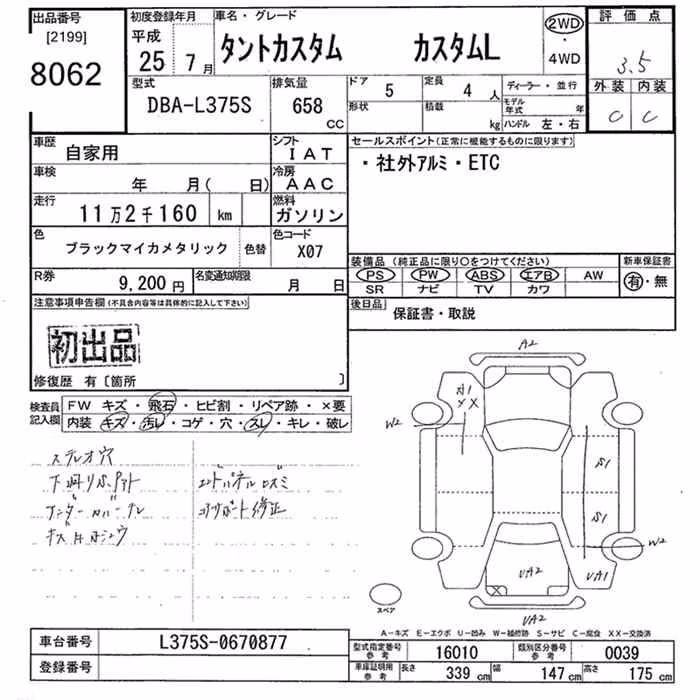 出品番号
[2199]
8062
初度登録年月
平成
25 7月
車名・グレード
タントカスタム カスタムL
2WD
・
4WD
評価点
3.5
外装 内装
C C
型式
DBA-L375S
排気量
658
CC
ドア 5
定員 4人
形状
積載 kg
ディーラー・並行
モデル年式 年
ハンドル 左・右
車歴
自家用
シフト
IAT
車検
年 月( 日)
冷房
AAC
走行
11万2千160 km
燃料
ガソリン
色
ブラックマイカメタリック
色替
色コード
X07
R券
9,200円
名変通知期限
月 日
セールスポイント(正常に機能するものに限ります)
・社外アルミ・ETC
装備品(純正品に限り○をつけてください)
PS PW ABS エアB AW
SR ナビ TV カワ
新車保証書
有・無
後日品
保証書・取説
注意事項申告欄(不具合内容等は具体的に記入して下さい)
初出品
修復歴 有〔箇所 〕
検査員記入欄
FW キズ・飛石・ヒビ割・リペア跡・×要
内装 キズ・汚レ・コゲ・穴・スレ・キレ・破レ
ステレオ穴
A2
A1
XX
W2
S1
S1
W2
UA2
UA1
UA2
スペア
A-キズ E-エクボ U-凹み W-補修跡 S-サビ C-腐食 XX-交換済
車台番号
L375S-0670877
登録番号
型式指定番号
参考
16010
類別区分番号
参考
0039
車庫証明用
参考
長さ 339cm
幅 147cm
高さ 175cm